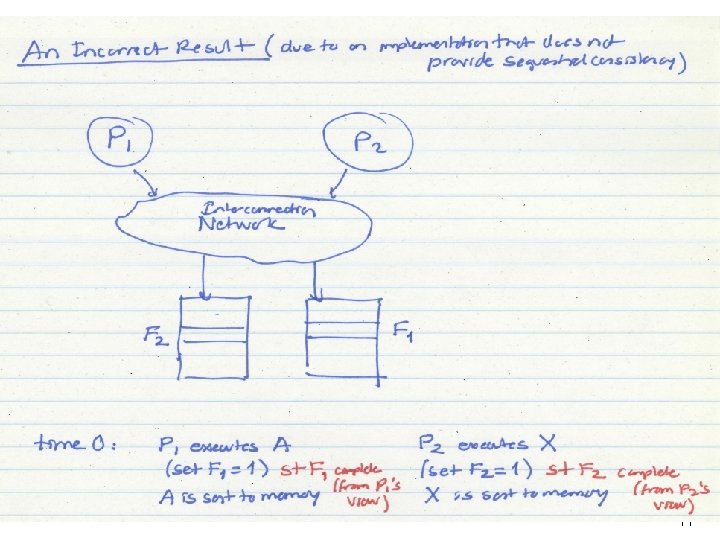 An Incorrect Result (due to an implementation that does not
provide sequential consistency)
P1
P2
Interconnection
Network
F2
F1
time 0: P1 executes A
(set F1 = 1) st F1 complete
(from P1's
view)
A is sent to memory
P2 executes X
(set F2 = 1) st F2 complete
(from P2's
view)
X is sent to memory